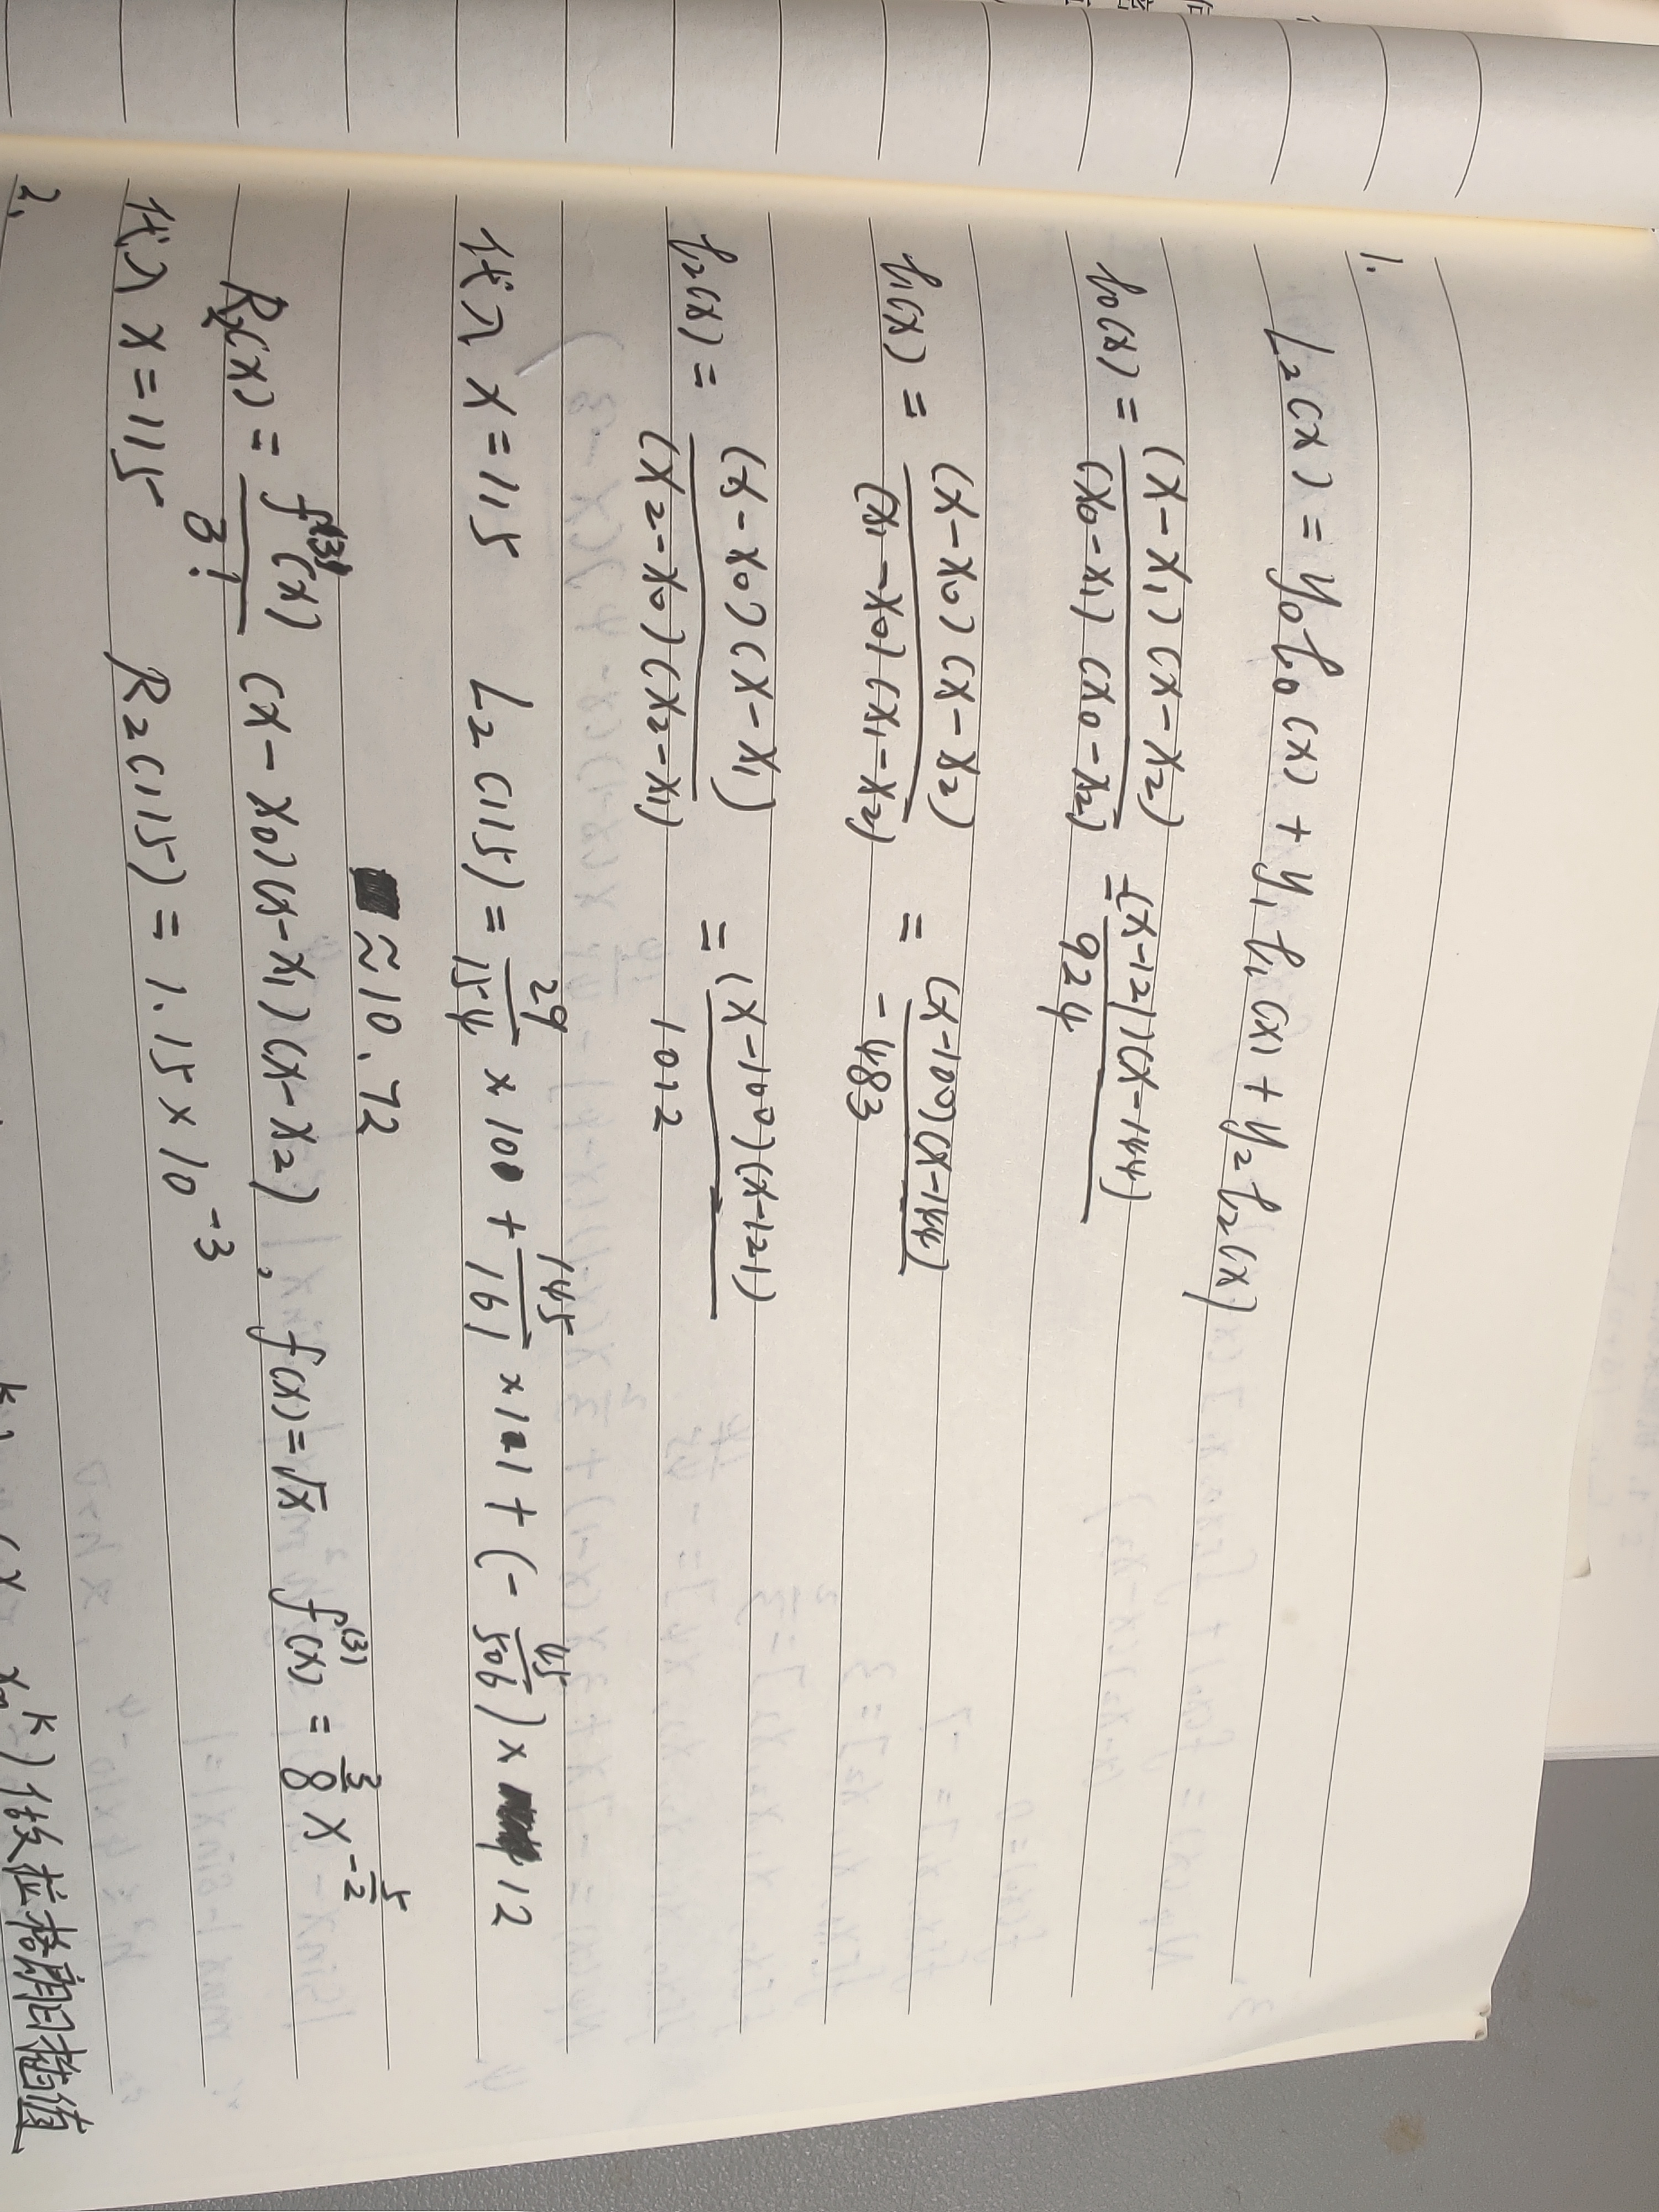 1.
L₂(x) = y₀l₀(x) + y₁l₁(x) + y₂l₂(x)
l₀(x) = (x-x₁)(x-x₂) / (x₀-x₁)(x₀-x₂) = (x-121)(x-144) / 924
l₁(x) = (x-x₀)(x-x₂) / (x₁-x₀)(x₁-x₂) = (x-100)(x-144) / -483
l₂(x) = (x-x₀)(x-x₁) / (x₂-x₀)(x₂-x₁) = (x-100)(x-121) / 1012
代入 x=115 L₂(115) = 29/154 × 10 + 145/161 × 11 + (-45/506) × 12
≈10.72
R₂(x) = f⁽³⁾(x) / 3! (x-x₀)(x-x₁)(x-x₂), f(x)=√x f⁽³⁾(x) = 3/8 x^(-5/2)
代入 x=115 R₂(115) = 1.15×10⁻³
2.
做拉格朗日插值